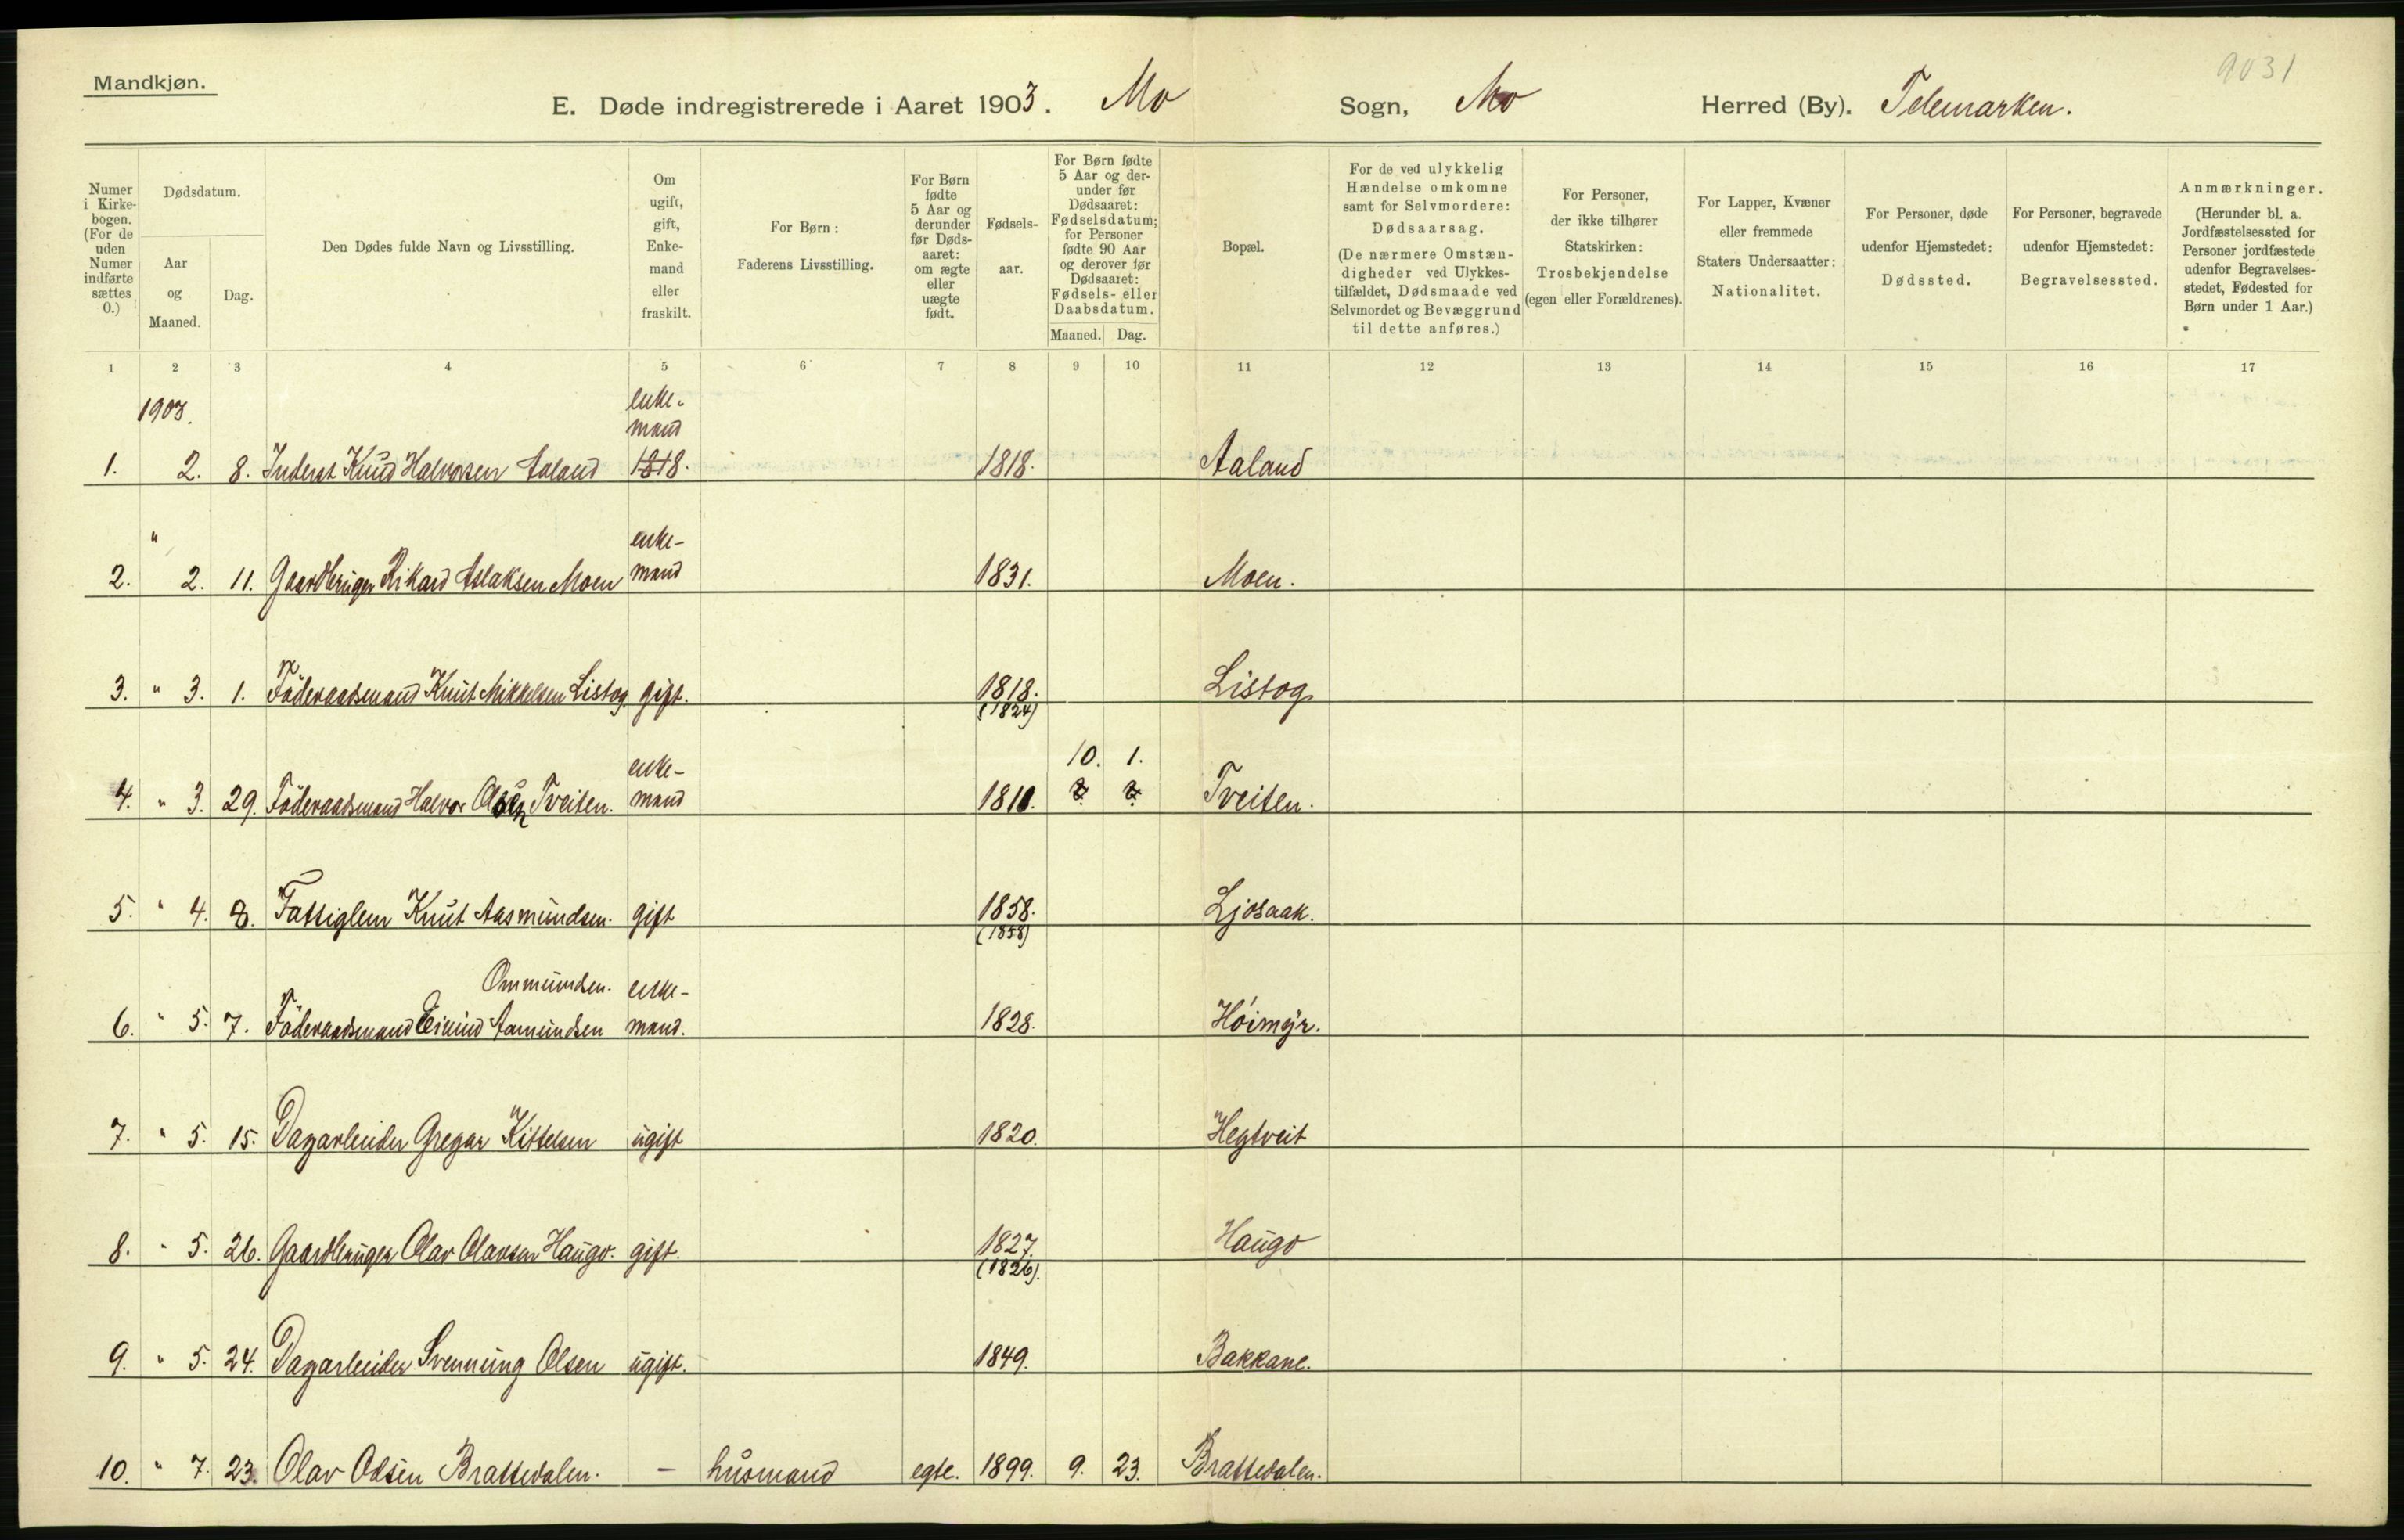 Mandkjøn.
9031
E. Døde indregistrerede i Aaret 1903. Mo Sogn, Mo Herred (By). Telemarken.
Numer i Kirkebogen. (For de uden Numer indførte sættes 0.)
Dødsdatum.
Aar og Maaned.
Dag.
Den Dødes fulde Navn og Livsstilling.
Om ugift, gift, Enkemand eller fraskilt.
For Børn: Faderens Livsstilling.
For Børn fødte 5 Aar og derunder før Dødsaaret: om ægte eller uægte født.
Fødselsaar.
For Børn fødte 5 Aar og derunder før Dødsaaret: Fødselsdatum; for Personer fødte 90 Aar og derover før Dødsaaret: Fødsels- eller Daabsdatum.
Maaned. Dag.
Bopæl.
For de ved ulykkelig Hændelse omkomne samt for Selvmordere: Dødsaarsag. (De nærmere Omstændigheder ved Ulykkestilfældet, Dødsmaade ved Selvmordet og Bevæggrund til dette anføres.)
For Personer, der ikke tilhører Statskirken: Trosbekjendelse (egen eller Forældrenes).
For Lapper, Kvæner eller fremmede Staters Undersaatter: Nationalitet.
For Personer, døde udenfor Hjemstedet: Dødssted.
For Personer, begravede udenfor Hjemstedet: Begravelsessted.
Anmærkninger. (Herunder bl. a. Jordfæstelsessted for Personer jordfæstede udenfor Begravelsesstedet, Fødested for Børn under 1 Aar.)
1 2 3 4 5 6 7 8 9 10 11 12 13 14 15 16 17
1903. enkemand
1. 2. 8. Inderst Knud Halvorsen Aaland 1818. 1818. Aaland
" enke-
2. 2. 11. Gaardbruger Rikard Aslaksen Moen mand 1831. Moen.
3. " 3. 1. Föderaadsmand Knut Mikkelsen Listog gift. 1818. Listog
(1824)
enke- 10. 1.
4. " 3. 29. Föderaadsmand Halvor Olsen Tveiten. mand 1810. ? ? Tveiten.
5. " 4. 8. Fattiglem Knut Aasmundsen. gift 1858. Ljosaak.
(1858)
Ommundsen. enke-
6. " 5. 7. Föderaadsmand Eivind Aamundsen mand. 1828. Höimyr.
7. " 5. 15. Dagarbeider Gregar Kittelsen ugift 1820. Hegtveit
8. " 5. 26. Gaardbruger Olav Olavsen Haugo. gift. 1827. Haugo
(1826).
9. " 5. 24. Dagarbeider Svennung Olsen ugift. 1849. Bakkane.
10. " 7. 23. Olav Olsen Brattedalen. — husmand egte. 1899. 9. 23. Brattedalen.